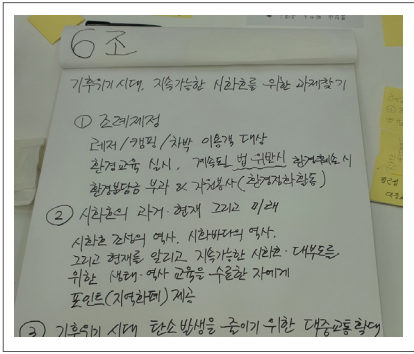 6조
기후위기 시대, 지속가능한 시화호를 위한 과제찾기
① 조례제정
레저/캠핑/차박 이용객 대상
환경교육 실시, 계속된 법 위반시 환경훼손 시
환경분담금 부과 & 자원봉사(환경정화활동)
② 시화호의 과거·현재 그리고 미래
시화호 조성의 역사, 시화바다의 역사,
그리고 현재를 알리고 지속가능한 시화호·대부도를
위한 생태·역사 교육을 수료한 자에게
포인트(지역화폐) 제공
③ 기후위기 시대 탄소발생을 줄이기 위한 대중교통 확대